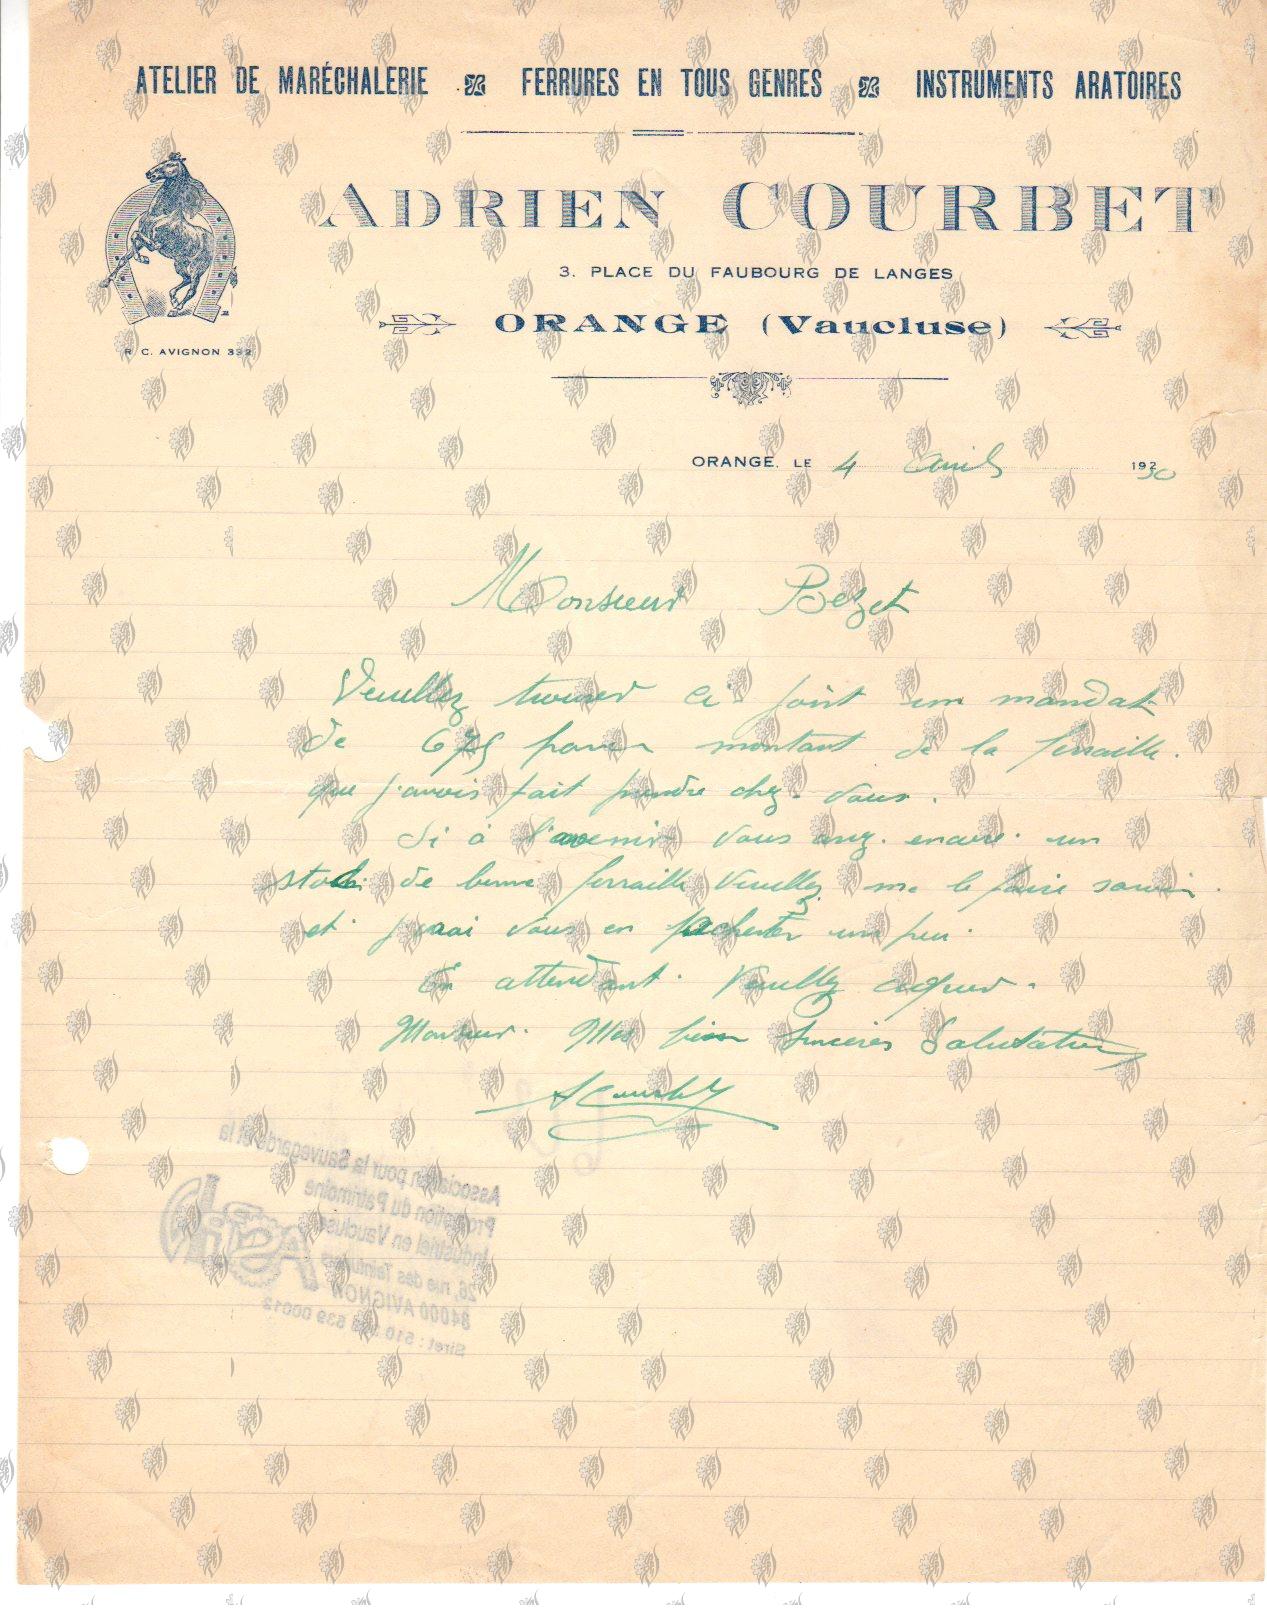 ATELIER DE MARÉCHALERIE FERRURES EN TOUS GENRES INSTRUMENTS ARATOIRES
ADRIEN COURBET
3. PLACE DU FAUBOURG DE LANGES
ORANGE (Vaucluse)
R. C. AVIGNON 332
ORANGE, LE 4 Avril 1930
Monsieur Bezet
Veuillez trouver ci joint un mandat
de 675 pour montant de la ferraille.
que j'avois fait prendre chez vous.
Si à l'avenir vous avez encore un
stock de bonne ferraille Veuillez me le faire savoir.
et j'irai vous en acheter un peu.
En attendant Veuillez agréer.
Monsieur. Mes bien sincères Salutations
A Courbet
Association pour la Sauvegarde et la
Promotion du Patrimoine
Industriel en Vaucluse
26, rue des Teinturiers
84000 AVIGNON
Siret : 510 539 00012